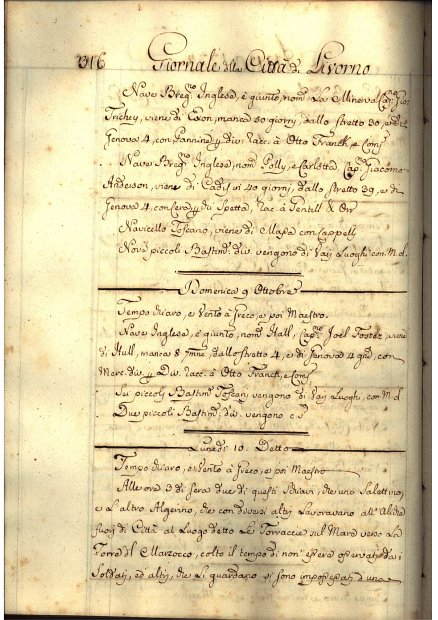 316 Giornale della Città di Livorno
Nave Breg.no Inglese, è giunto, nom.to La Minerva Cap.no Gio:
Trichey, viene di Exon, manca 50 giorni, dallo stretto 30, e di
Genova 4, con Pannine, y div: racc. a Otto Franck, e Comp
Nave Breg.no Inglese, nom. Polly, e Carlotta Cap.no Giacomo
Aderson, viene di Cadis in 40 giorni, dallo stretto 39, e di
Genova 4, con Cera, y di Spetta, rac: a Gentill & Orr
Navicello Toscano, viene di Massa con Cappelli
Nove piccoli Bastim.ti div. vengono di Varj Luoghi con M. d.
Domenica 9 Ottobre
Tempo chiaro, e Vento à Greco, e poi Maestro.
Nave Inglese, è giunto, nom.to Hall, Cap.no Joel Foster, viene
di Hull, manca 8 mne, dallo stretto 4, e di Genova 4 gni, con
Merc. div. y Div. racc. a Otto Franck, e Comp
Sei piccoli Bastim.ti Toscani, vengono di Varj Luoghi, con M. d.
Due piccoli Bastim.ti div. vengono c. s.
Lunedi 10 Detto
Tempo chiaro, e Vento à Greco, e poi Maestro
Alle ore 3 di sera due di questi Schiavi, che uno Salettino,
e L'altro Algerino, che con diversi altri Lavoravano all'
fuori di Città al Luogo detto Le Torracce sul Mare verso La
Torre del Marzocco, colto il tempo di non essere osservati da i
Soldati, ed altri, che Li guardano si sono impossessati d'una